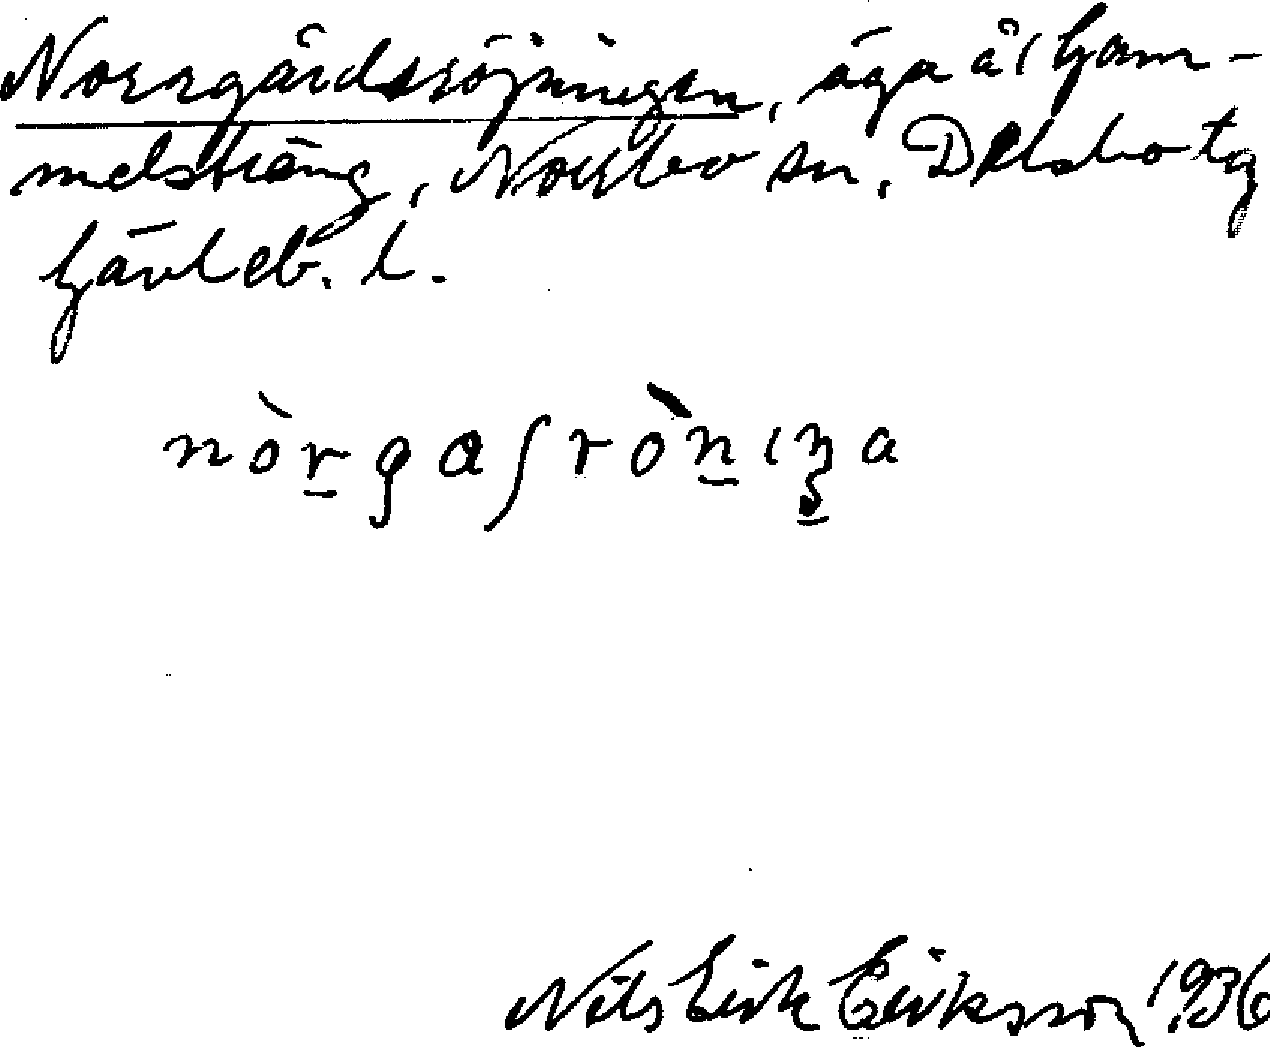 Norrgårdsröjningen, äga å Gam-
melsträng, Norrbo sn, Delsbo tg
Gävleb. l.
nòrgaſròniŋa
Nils Eirik Eriksson 1936